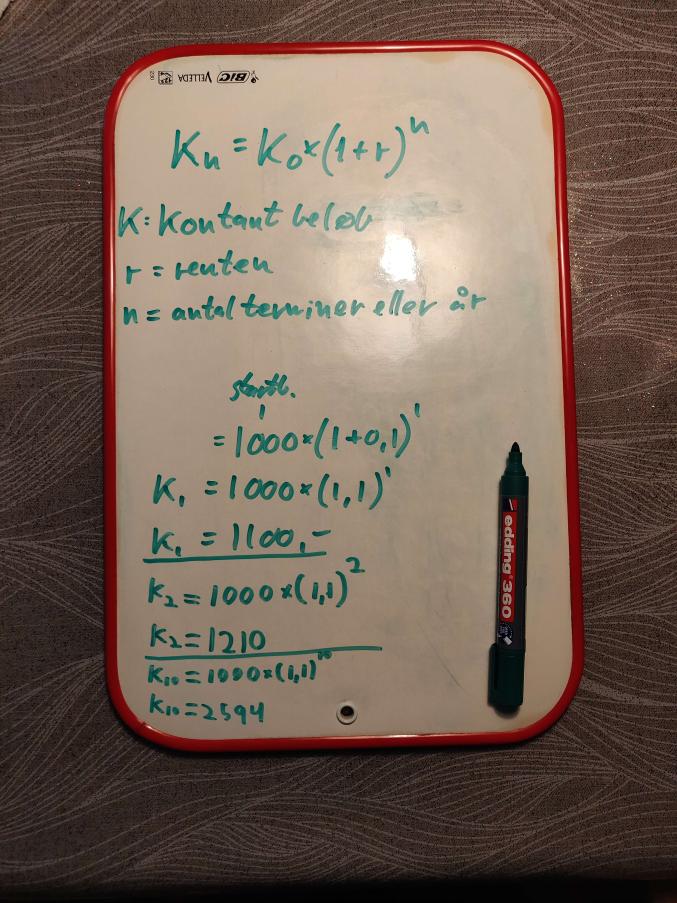 BIC VELLEDA
Kn = K0×(1+r)^n
K: Kontant beløb
r = renten
n = antal terminer eller år
startb.
= 1000×(1+0,1)^1
K1 = 1000×(1,1)^1
K1 = 1100,-
K2 = 1000×(1,1)^2
K2 = 1210
K10 = 1000×(1,1)^10
K10 = 2594
edding 360